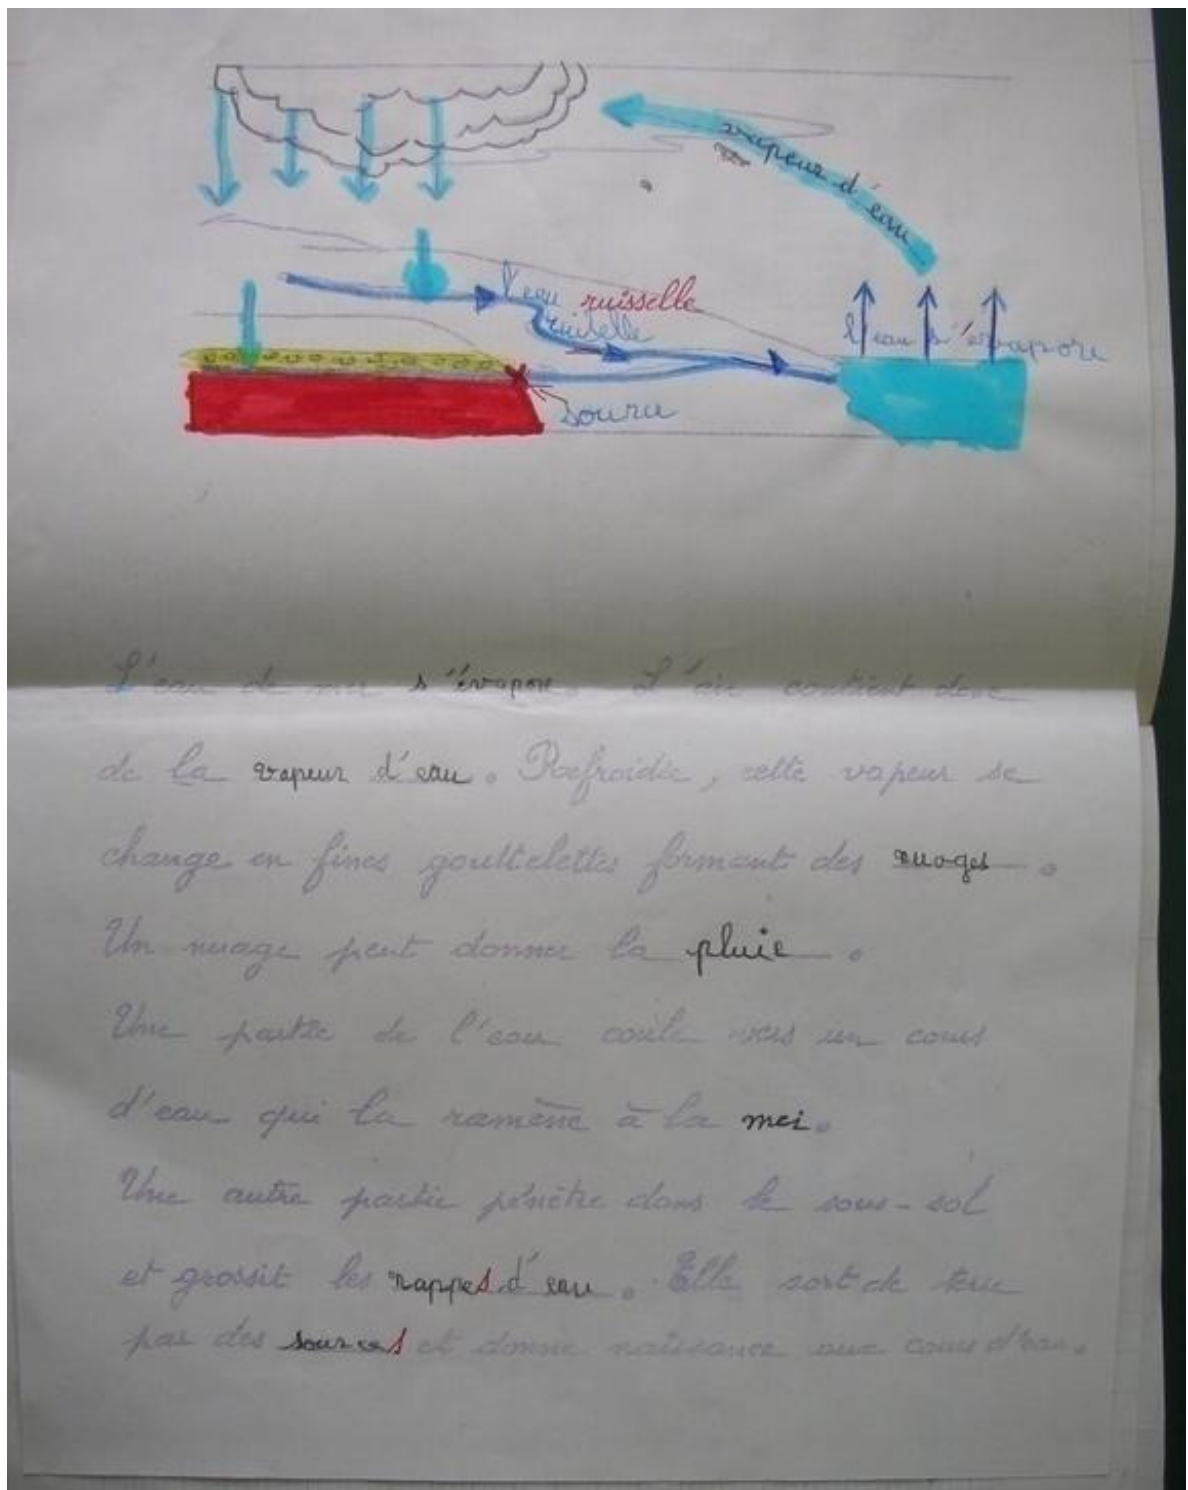 vapeur d'eau
l'eau ruisselle
ruiselle
l'eau s'évapore
source
L'eau de mer s'évapore. L'air contient donc
de la vapeur d'eau. Refroidie, cette vapeur se
change en fines gouttelettes formant des nuages.
Un nuage peut donner la pluie.
Une partie de l'eau coule vers un cours
d'eau qui la ramène à la mer.
Une autre partie pénètre dans le sous-sol
et grossit les nappes d'eau. Elle sort de terre
par des sources et donne naissance aux cours d'eau.